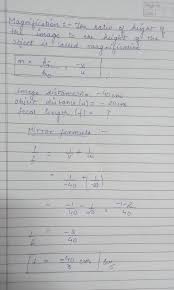 Magnification :- The ratio of height of
the image to the height of the
object is called magnification
m = hi / ho = -v / u
Image distance = -40 cm
object distance (u) = -20 cm
focal length (f) = ?
Mirror formula :-
1/f = 1/v + 1/u
= 1/-40 + (1/-20)
= -1/40 - 1/20 = -1-2/40
1/f = -3/40
f = -40/3 cm